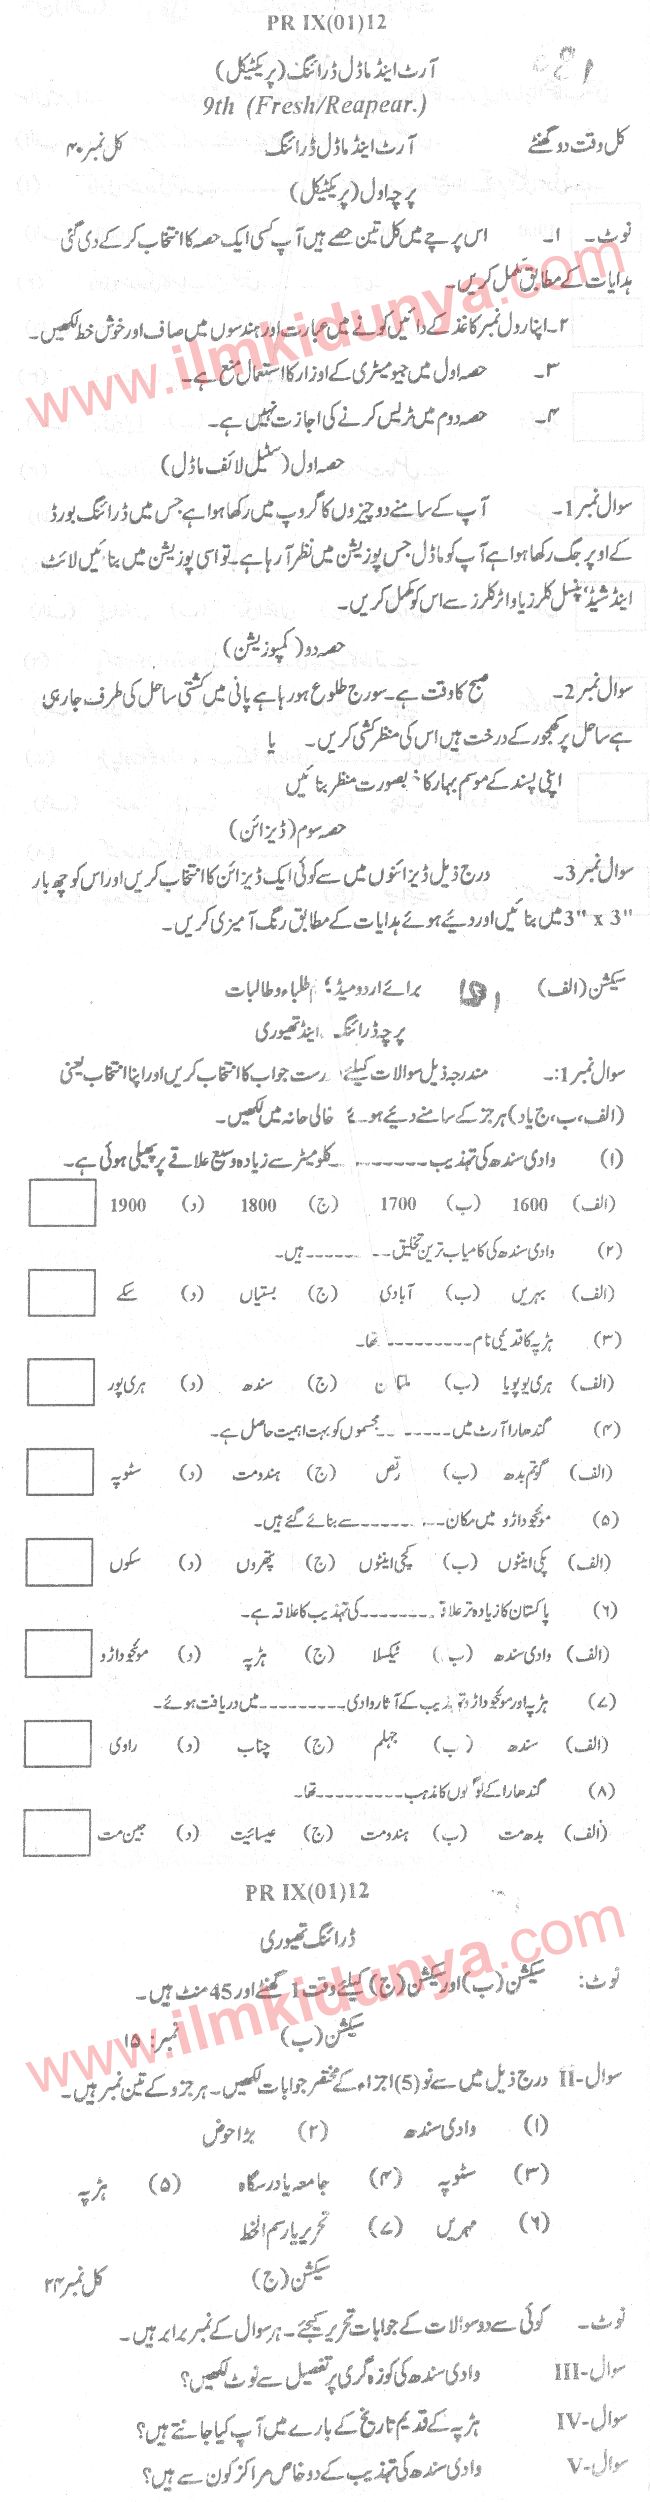 PR IX(01)12
آرٹ اینڈ ماڈل ڈرائنگ (پریکٹیکل)
9th (Fresh/Reapear.)
کل وقت دو گھنٹے آرٹ اینڈ ماڈل ڈرائنگ کل نمبر ۴۰
پرچہ اول (پریکٹیکل)
نوٹ۔ ۱۔ اس پرچے میں کل تین حصے ہیں آپ کسی ایک حصہ کا انتخاب کر کے دی گئی
ہدایات کے مطابق مکمل کریں۔
۲۔ اپنا رول نمبر کاغذ کے دائیں کونے میں عبارت اور ہندسوں میں صاف اور خوش خط لکھیں۔
۳۔ حصہ اول میں جیومیٹری کے اوزار کا استعمال منع ہے۔
۴۔ حصہ دوم میں ٹریس کرنے کی اجازت نہیں ہے۔
حصہ اول (سٹیل لائف ماڈل)
سوال نمبر 1۔ آپ کے سامنے دو چیزوں کا گروپ میں رکھا ہوا ہے جس میں ڈرائنگ بورڈ
کے اوپر جگ رکھا ہوا ہے آپ کو ماڈل جس پوزیشن میں نظر آ رہا ہے۔ تو اسی پوزیشن میں بنائیں لائٹ
اینڈ شیڈ، پنسل کلرز یا واٹر کلرز سے اس کو مکمل کریں۔
حصہ دو (کمپوزیشن)
سوال نمبر 2۔ صبح کا وقت ہے۔ سورج طلوع ہو رہا ہے پانی میں کشتی ساحل کی طرف جا رہی
ہے ساحل پر کھجور کے درخت ہیں اس کی منظر کشی کریں۔ یا
اپنی پسند کے موسم بہار کا خوبصورت منظر بنائیں
حصہ سوم (ڈیزائن)
سوال نمبر 3۔ درج ذیل ڈیزائنوں میں سے کوئی ایک ڈیزائن کا انتخاب کریں اور اس کو چھ بار
3" x 3" میں بنائیں اور دیئے ہوئے ہدایات کے مطابق رنگ آمیزی کریں۔
سیکشن (الف) برائے اردو میڈیم طلباء و طالبات
پرچہ ڈرائنگ اینڈ تھیوری
سوال نمبر 1:۔ مندرجہ ذیل سوالات کیلئے درست جواب کا انتخاب کریں اور اپنا انتخاب یعنی
(الف، ب، ج یا د) ہر جز کے سامنے دیئے ہوئے خالی خانہ میں لکھیں۔
(۱) وادی سندھ کی تہذیب ---------- کلومیٹر سے زیادہ وسیع علاقے پر پھیلی ہوئی ہے۔
(الف) 1600 (ب) 1700 (ج) 1800 (د) 1900
(۲) وادی سندھ کی کامیاب ترین تخلیق -------- ہیں۔
(الف) مہریں (ب) آبادی (ج) بستیاں (د) سکے
(۳) ہڑپہ کا قدیمی نام --------- تھا۔
(الف) ہری یوپویا (ب) ملتان (ج) سندھ (د) ہری پور
(۴) گندھارا آرٹ میں -------- مجسموں کو بہت اہمیت حاصل ہے۔
(الف) گوتم بدھ (ب) رقص (ج) ہندومت (د) سٹوپہ
(۵) موئنجوداڑو میں مکان --------- سے بنائے گئے ہیں۔
(الف) پکی اینٹوں (ب) کچی اینٹوں (ج) پتھروں (د) سکوں
(۶) پاکستان کا زیادہ تر علاقہ --------- کی تہذیب کا علاقہ ہے۔
(الف) وادی سندھ (ب) ٹیکسلا (ج) ہڑپہ (د) موئنجوداڑو
(۷) ہڑپہ اور موئنجوداڑو تہذیب کے آثار وادی --------- میں دریافت ہوئے۔
(الف) سندھ (ب) جہلم (ج) چناب (د) راوی
(۸) گندھارا کے لوگوں کا مذہب --------- تھا۔
(الف) بدھ مت (ب) ہندومت (ج) عیسائیت (د) جین مت
PR IX(01)12
ڈرائنگ تھیوری
نوٹ: سیکشن (ب) اور سیکشن (ج) کیلئے وقت 1 گھنٹے اور 45 منٹ ہیں۔
سیکشن (ب) نمبر: ۱۵
سوال-II درج ذیل میں سے نو (5) اجزاء کے مختصر جوابات لکھیں۔ ہر جزو کے تین نمبر ہیں۔
(۱) وادی سندھ (۲) بڑا حوض
(۳) سٹوپہ (۴) جامعہ یا درسگاہ (۵) ہڑپہ
(۶) مہریں (۷) تحریر یا رسم الخط
سیکشن (ج) کل نمبر ۲۴
نوٹ۔ کوئی سے دو سوالات کے جوابات تحریر کیجئے۔ ہر سوال کے نمبر برابر ہیں۔
سوال-III وادی سندھ کی کوزہ گری پر تفصیل سے نوٹ لکھیں؟
سوال-IV ہڑپہ کے قدیم تاریخ کے بارے میں آپ کیا جانتے ہیں؟
سوال-V وادی سندھ کی تہذیب کے دو خاص مراکز کون سے ہیں؟
www.ilmkidunya.com
www.ilmkidunya.com